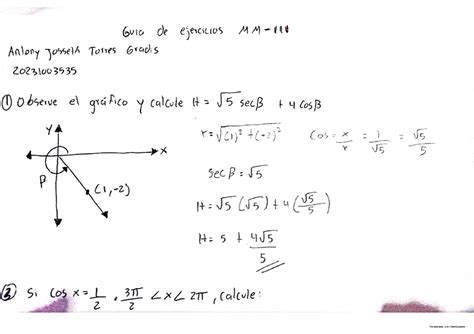 Guia de ejercicios MM-111
Antony Josseth Torres Gradis
20231003535
① Observe el gráfico y calcule H = √5 secβ + 4 cosβ
Y
X
β
(1,-2)
r = √(1)² + (-2)²
Cos = x/r = 1/√5 = √5/5
sec β = √5
H = √5 (√5) + 4 (√5/5)
H = 5 + 4√5/5
② Si cos x = 1/2 , 3π/2 < x < 2π , calcule: